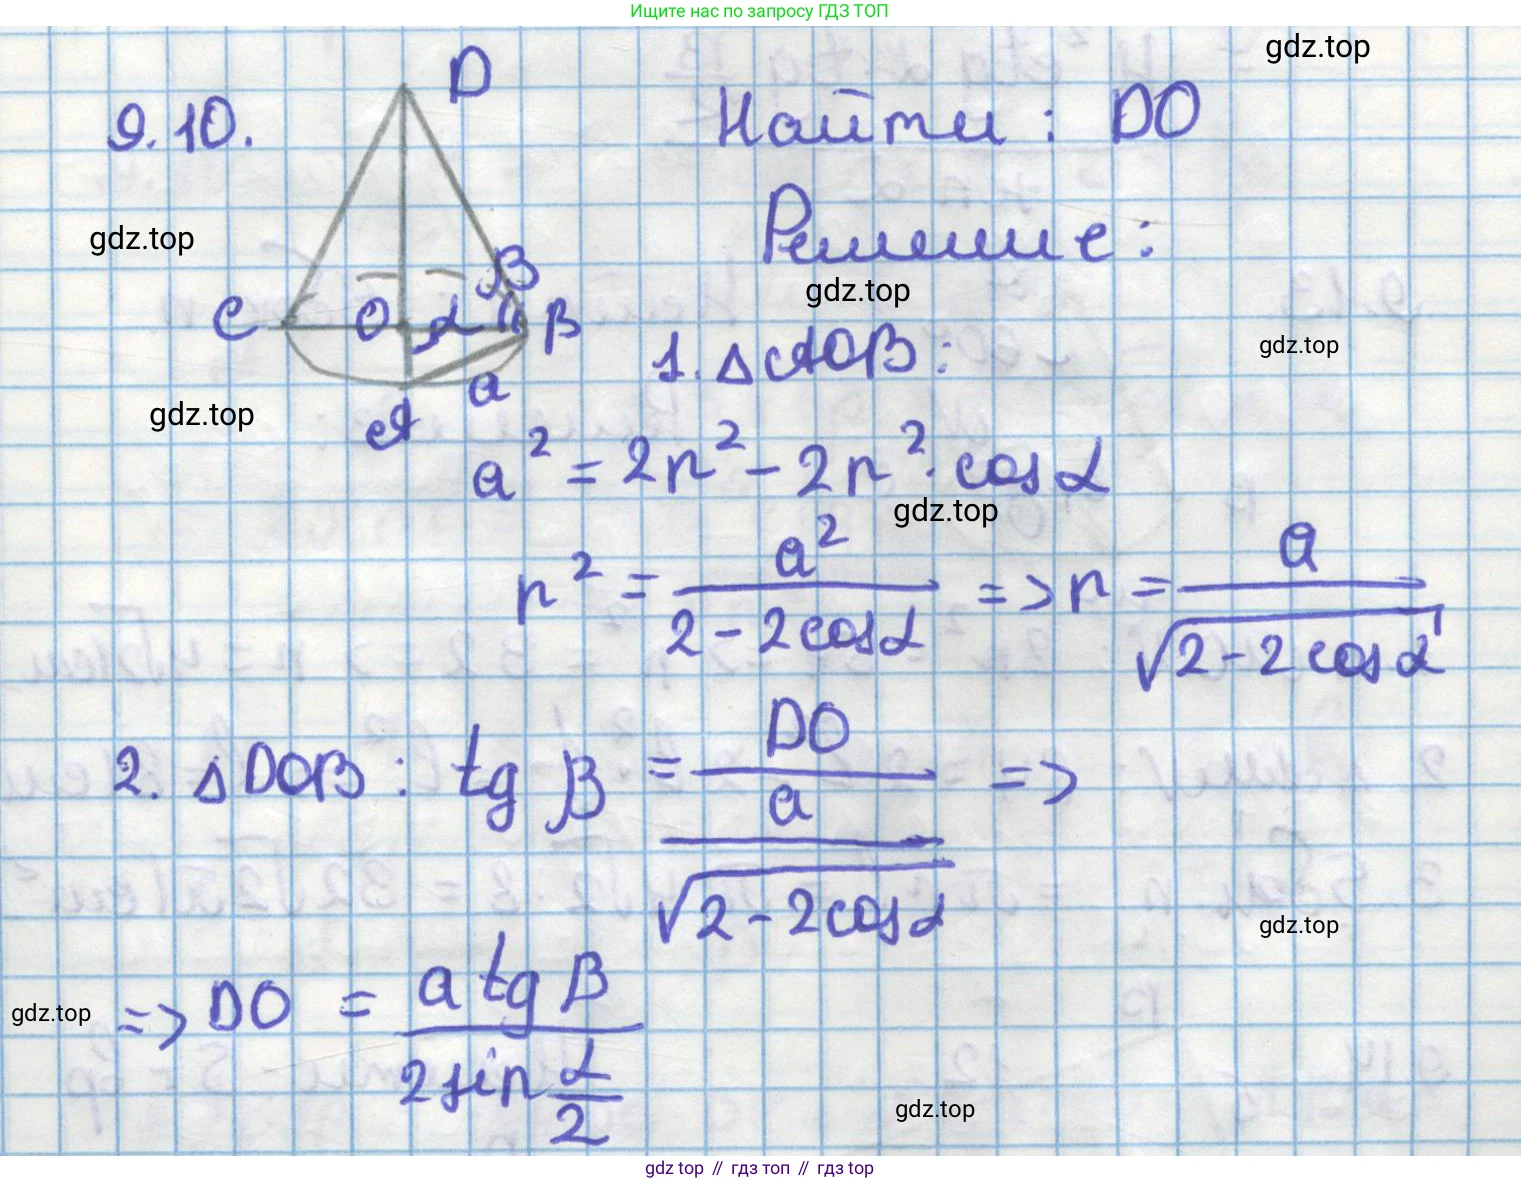 Ищите нас по запросу ГДЗ ТОП
gdz.top
9.10.
D
Найти : DO
gdz.top
Решение :
gdz.top
C O α β B
1. △AOB :
gdz.top
gdz.top
a
A
a² = 2r² - 2r² · cos α
gdz.top
r² = a² / (2 - 2cosα) => r = a / √(2 - 2cosα)
2. △DOB : tg β = DO / (a / √(2 - 2cosα)) =>
gdz.top
gdz.top
=> DO = a tg β / (2 sin α/2)
gdz.top
gdz top // гдз топ // гдз top